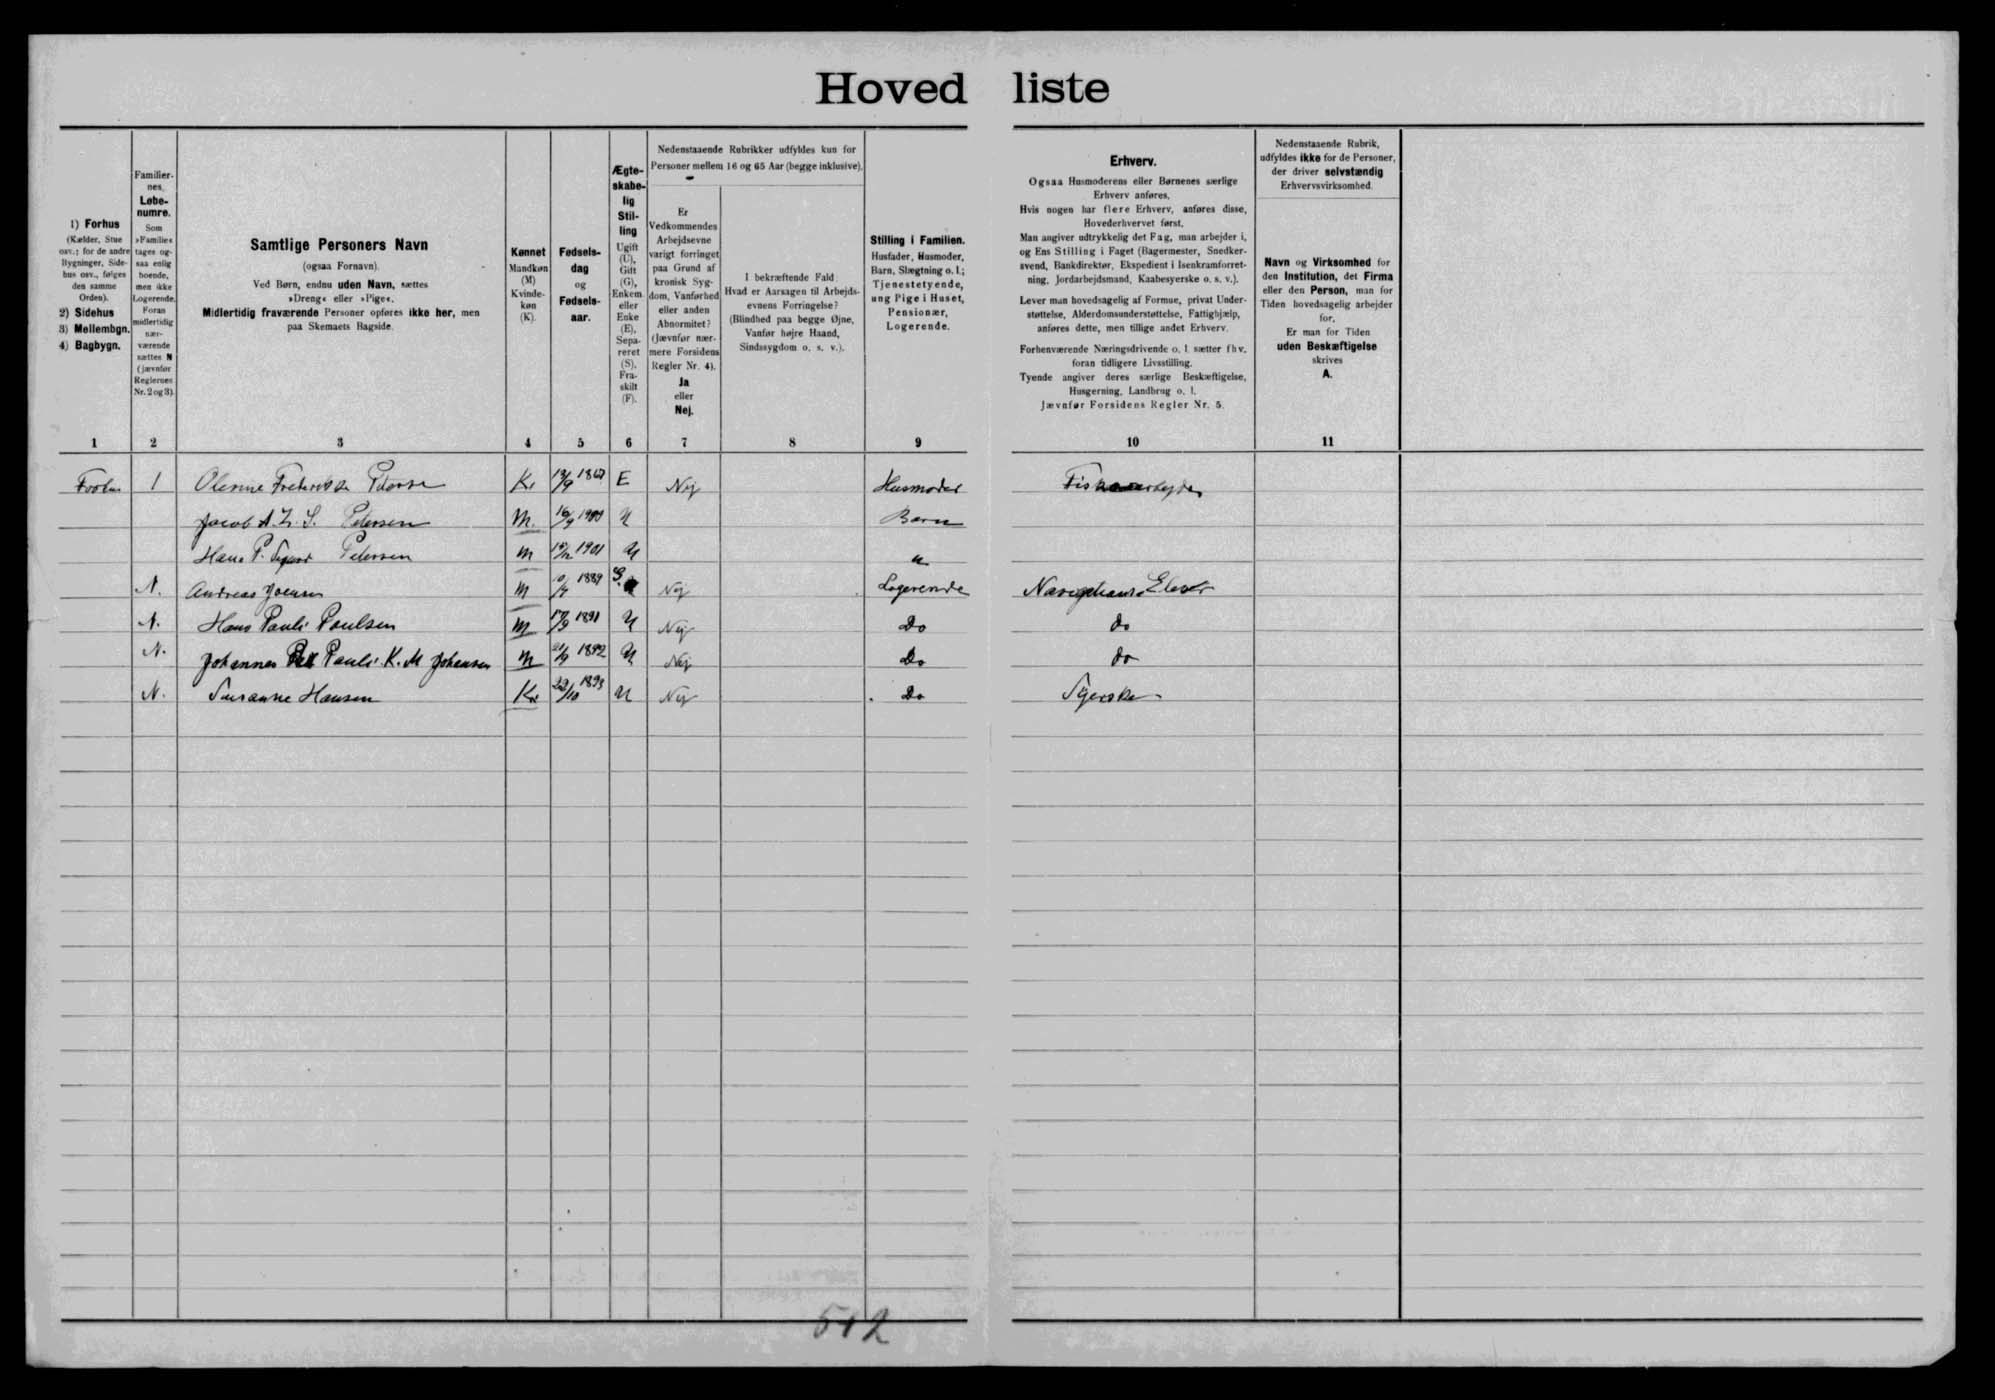 Hoved liste
1) Forhus
(Kælder, Stue
osv.; for de andre
Bygninger, Side-
hus osv., følges
den samme
Orden).
2) Sidehus
3) Mellembgn.
4) Bagbygn.
Familier-
nes,
Løbe-
numre.
Som
»Familie«
tages og-
saa enlig
boende,
men ikke
Logerende.
Foran
midlertidig
nær-
værende
sættes N
(jævnfør
Reglernes
Nr. 2 og 3).
Samtlige Personers Navn
(ogsaa Fornavn).
Ved Børn, endnu uden Navn, sættes
»Dreng« eller »Pige«.
Midlertidig fraværende Personer opføres ikke her, men
paa Skemaets Bagside.
Kønnet
Mandkøn
(M)
Kvinde-
køn
(K).
Fødsels-
dag
og
Fødsels-
aar.
Ægte-
skabe-
lig
Stil-
ling
Ugift
(U),
Gift
(G),
Enkem.
eller
Enke
(E),
Sepa-
reret
(S),
Fra-
skilt
(F).
Nedenstaaende Rubrikker udfyldes kun for
Personer mellem 16 og 65 Aar (begge inklusive).
Er
Vedkommendes
Arbejdsevne
varigt forringet
paa Grund af
kronisk Syg-
dom, Vanførhed
eller anden
Abnormitet?
(Jævnfør nær-
mere Forsidens
Regler Nr. 4).
Ja
eller
Nej.
I bekræftende Fald:
Hvad er Aarsagen til Arbejds-
evnens Forringelse?
(Blindhed paa begge Øjne,
Vanfør højre Haand,
Sindssygdom o. s. v.).
Stilling i Familien.
Husfader, Husmoder,
Barn, Slægtning o. l.;
Tjenestetyende,
ung Pige i Huset,
Pensionær,
Logerende.
Erhverv.
Ogsaa Husmoderens eller Børnenes særlige
Erhverv anføres.
Hvis nogen har flere Erhverv, anføres disse,
Hovederhvervet først.
Man angiver udtrykkelig det Fag, man arbejder i,
og Ens Stilling i Faget (Bagermester, Snedker-
svend, Bankdirektør, Ekspedient i Isenkramforret-
ning, Jordarbejdsmand, Kaabesyerske o. s. v.).
Lever man hovedsagelig af Formue, privat Under-
støttelse, Alderdomsunderstøttelse, Fattighjælp,
anføres dette, men tillige andet Erhverv.
Forhenværende Næringsdrivende o. l. sætter fhv.
foran tidligere Livsstilling.
Tyende angiver deres særlige Beskæftigelse,
Husgerning, Landbrug o. l.
Jævnfør Forsidens Regler Nr. 5.
Nedenstaaende Rubrik,
udfyldes ikke for de Personer,
der driver selvstændig
Erhvervsvirksomhed.
Navn og Virksomhed for
den Institution, det Firma
eller den Person, man for
Tiden hovedsagelig arbejder
for.
Er man for Tiden
uden Beskæftigelse
skrives
A.
1 2 3 4 5 6 7 8 9 10 11
1 E Nej Husmoder
Jacob A. Z. S. Petersen M. U Barn
Hans P. Petersen M 1901 U
N. Andreas Joensen M 1889 G. Nej Logerende
N. Hans Pauli Poulsen M 1891 U Nej Do do
N. Johannes Pauli K. M Johansen M 1892 U Nej Do do
N. Susanne Hansen Kv 1893 U Nej Do Syerske
512